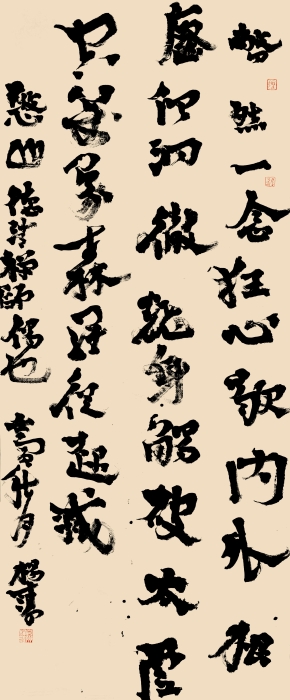 瞥然一念狂心歇内外根
塵俱洞徹翻身觸破太虛
空萬象森羅從起滅
憨山德清禪師偈也 秋月